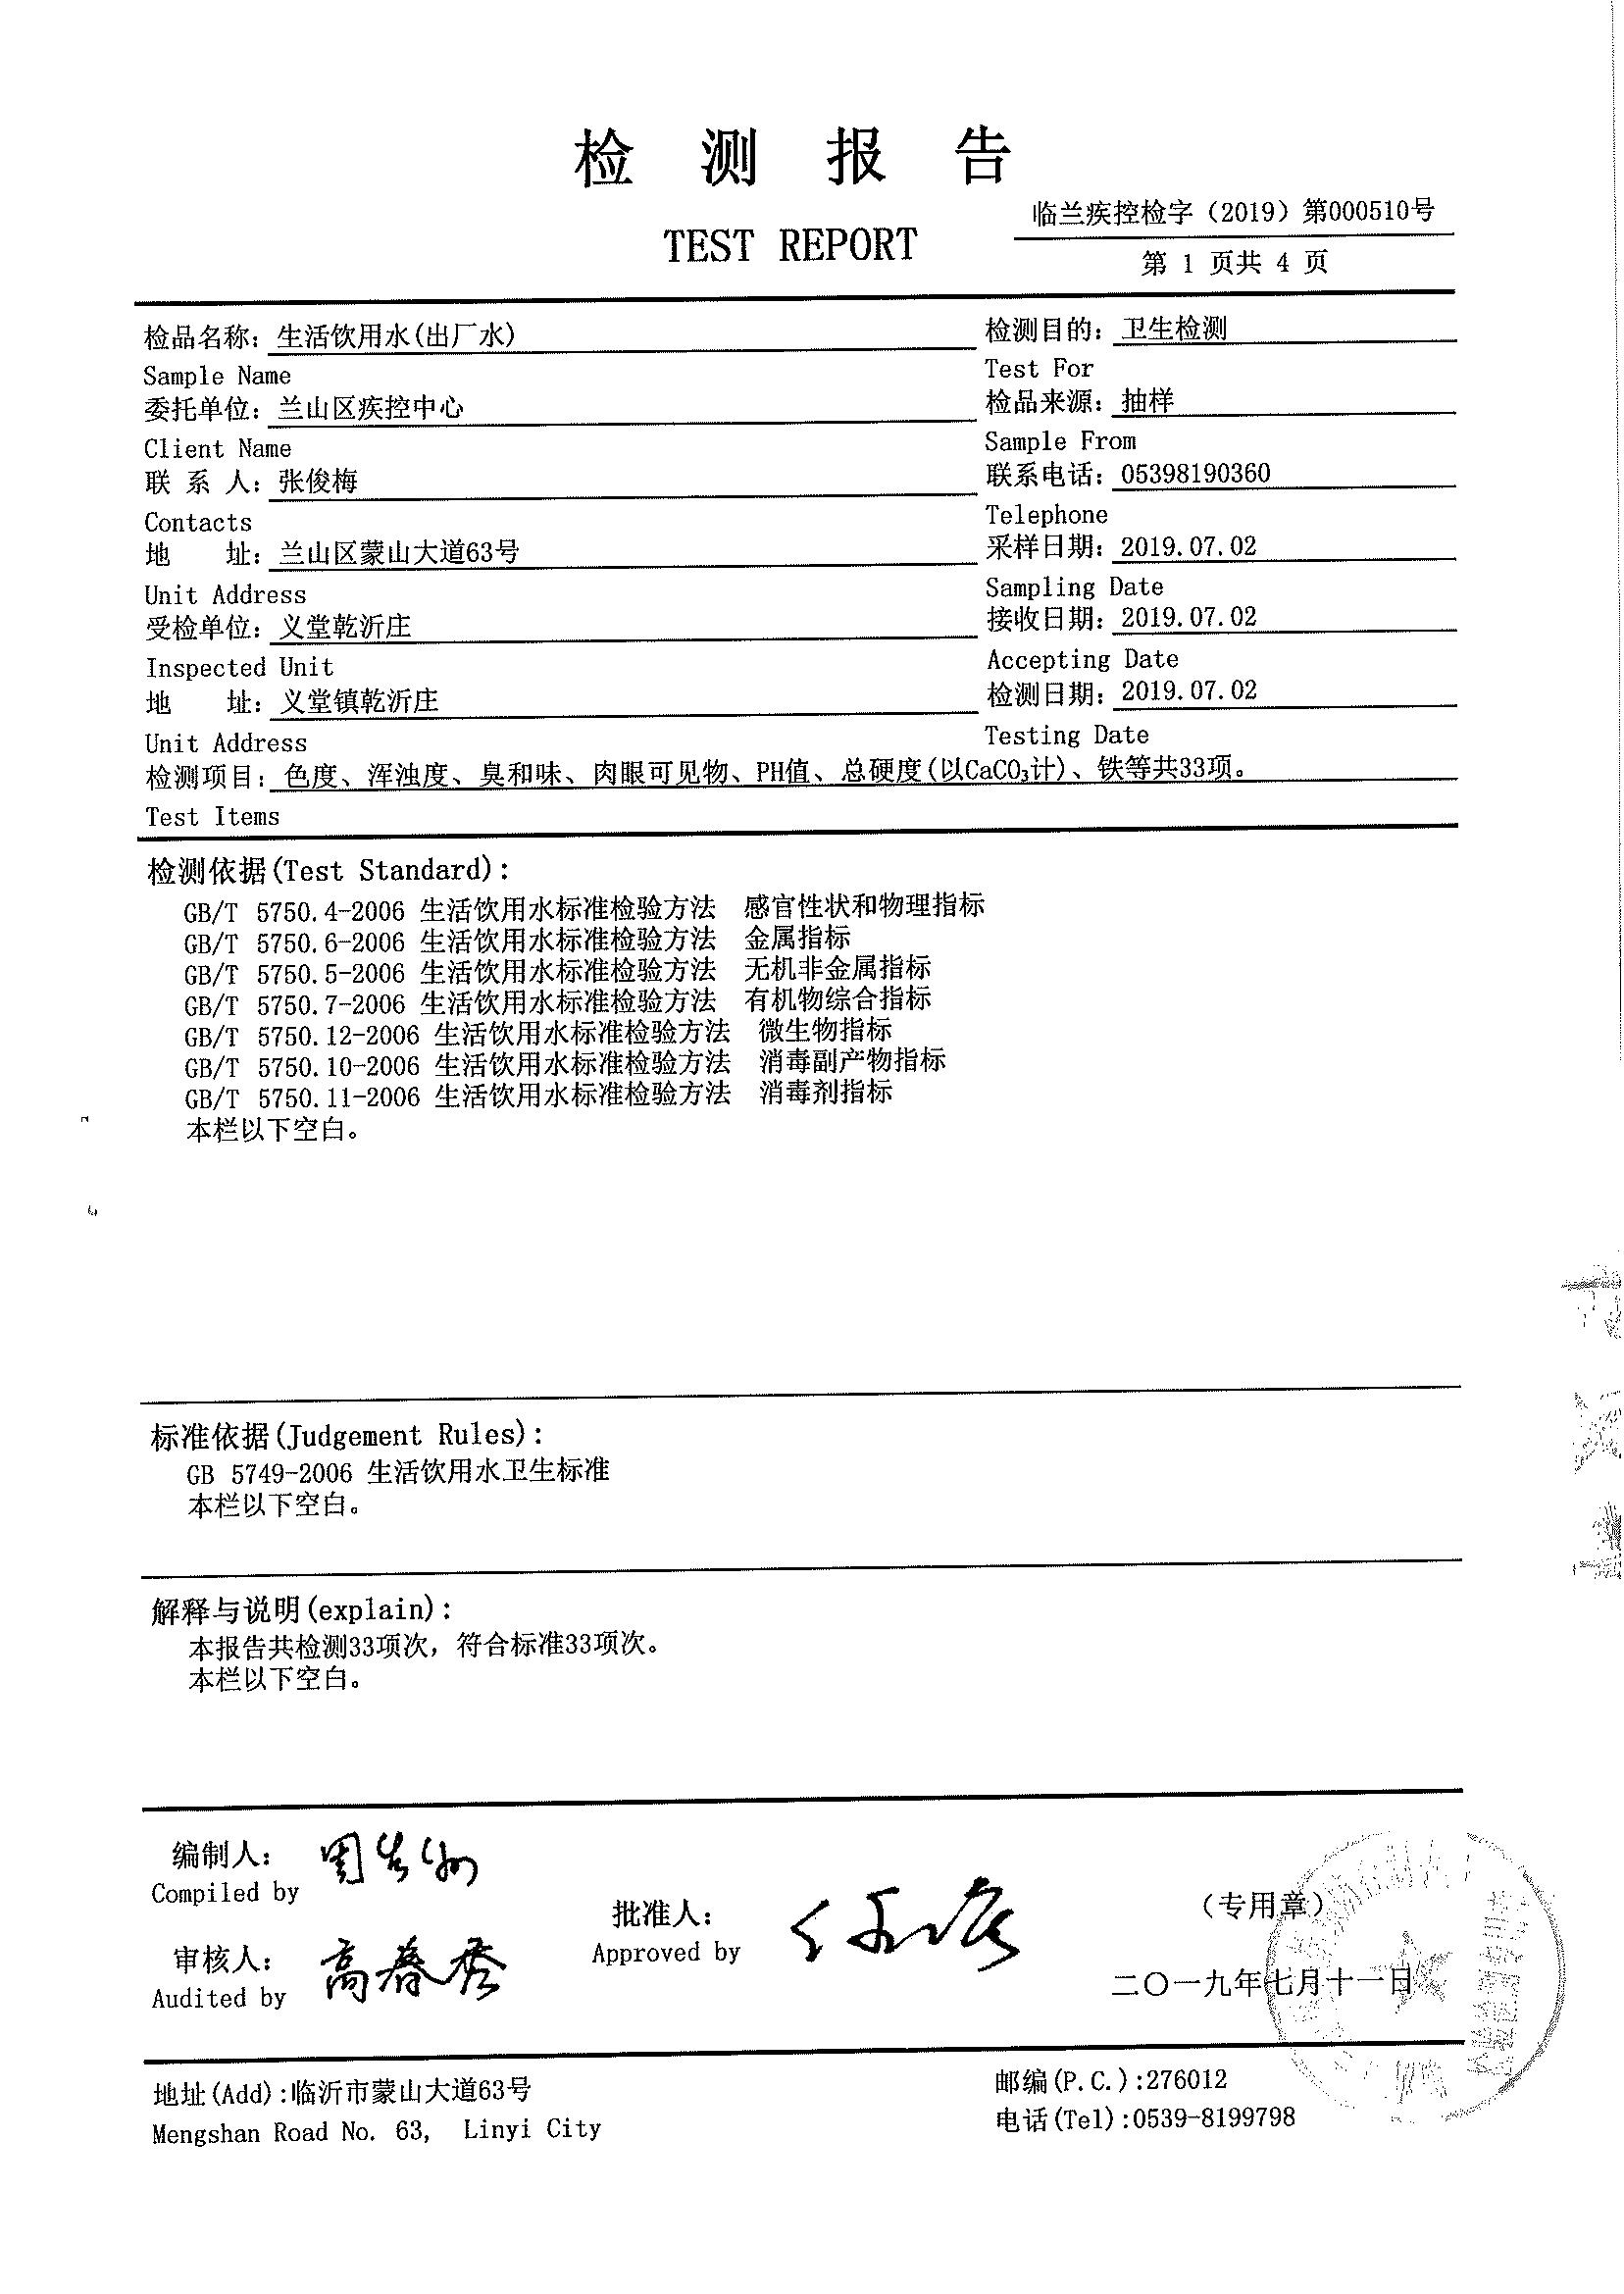 检测报告
临兰疾控检字（2019）第000510号
TEST REPORT
第 1 页共 4 页
检品名称：生活饮用水(出厂水) 检测目的：卫生检测
Sample Name Test For
委托单位：兰山区疾控中心 检品来源：抽样
Client Name Sample From
联 系 人：张俊梅 联系电话：05398190360
Contacts Telephone
地 址：兰山区蒙山大道63号 采样日期：2019.07.02
Unit Address Sampling Date
受检单位：义堂乾沂庄 接收日期：2019.07.02
Inspected Unit Accepting Date
地 址：义堂镇乾沂庄 检测日期：2019.07.02
Unit Address Testing Date
检测项目：色度、浑浊度、臭和味、肉眼可见物、PH值、总硬度(以CaCO₃计)、铁等共33项。
Test Items
检测依据(Test Standard)：
GB/T 5750.4-2006 生活饮用水标准检验方法 感官性状和物理指标
GB/T 5750.6-2006 生活饮用水标准检验方法 金属指标
GB/T 5750.5-2006 生活饮用水标准检验方法 无机非金属指标
GB/T 5750.7-2006 生活饮用水标准检验方法 有机物综合指标
GB/T 5750.12-2006 生活饮用水标准检验方法 微生物指标
GB/T 5750.10-2006 生活饮用水标准检验方法 消毒副产物指标
GB/T 5750.11-2006 生活饮用水标准检验方法 消毒剂指标
本栏以下空白。
标准依据(Judgement Rules)：
GB 5749-2006 生活饮用水卫生标准
本栏以下空白。
解释与说明(explain)：
本报告共检测33项次，符合标准33项次。
本栏以下空白。
编制人：
Compiled by
批准人：
Approved by
（专用章）
审核人：高春秀
Audited by
二〇一九年七月十一日
地址(Add)：临沂市蒙山大道63号 邮编(P.C.)：276012
Mengshan Road No. 63, Linyi City 电话(Tel)：0539-8199798